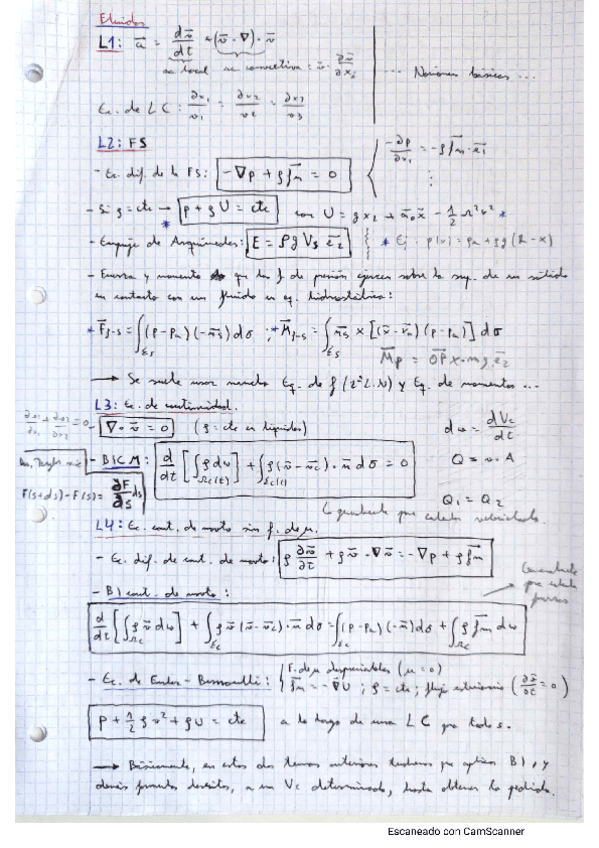 Fluidos
L1: a⃗ = dv⃗/dt + (v⃗ · ∇) · v⃗
ac local ac convectiva: v⃗ · ∂v⃗/∂xi
... Nociones básicas ...
Ec. de LC: ∂x1/v1 = ∂x2/v2 = ∂x3/v3
L2: FS
- Ec. dif. de la FS: -∇p + ρf⃗m = 0
-∂p/∂x1 = -ρf⃗m · e⃗1
⋮
- Si ρ = cte → p + ρU = cte con U = g x2 + a⃗0x⃗ - 1/2 Ω²r² *
- Empuje de Arquímedes: E = ρg Vs e⃗2
* Ej: p(x) = pa + ρg(h - x)
- Fuerza y momento que las f de presión ejercen sobre la sup. de un sólido
en contacto con un fluido en eq. hidrostático:
* F⃗f-s = ∫Σs (p - pa)(-n⃗s) dσ ; * M⃗f-s = ∫Σs n⃗s × [(x⃗ - x⃗o)(p - pa)] dσ
M⃗p = OP⃗ × mg e⃗2
→ Se suele usar mucho Eq. de f (2ª L.N) y Eq. de momentos ...
L3: Ec. de continuidad.
∂v1/∂x1 + ∂v2/∂x2 = 0
- ∇ · v⃗ = 0 (ρ = cte en líquidos)
dω = dVc/dt
Q = v · A
- BICM: d/dt [∫Ωc(t) ρdω] + ∫Σc(t) ρ(v⃗ - v⃗c) · n⃗ dσ = 0
F(s+ds) - F(s) = ∂F/∂s ds
Q1 = Q2
calcular velocidades.
L4: Ec. cant. de movto sin f. de μ.
- Ec. dif. de cant. de movto: ρ ∂v⃗/∂t + ρv⃗ · ∇v⃗ = -∇p + ρf⃗m
- BI cant. de movto:
d/dt [∫Ωc ρv⃗dω] + ∫Σc ρv⃗(v⃗ - v⃗c) · n⃗ dσ = ∫Σc (p - pa)(-n⃗)dσ + ∫Ωc ρf⃗m dω
- Ec. de Euler-Bernoulli: F. de μ despreciables (μ = 0)
f⃗m = -∇U ; ρ = cte ; flujo estacionario (∂v⃗/∂t = 0)
p + 1/2 ρv² + ρU = cte a lo largo de una LC
→ Básicamente, en estos dos temas anteriores tendremos que aplicar BI, y
demás fórmulas descritas, a un Vc determinado, hasta obtener lo pedido.
Escaneado con CamScanner